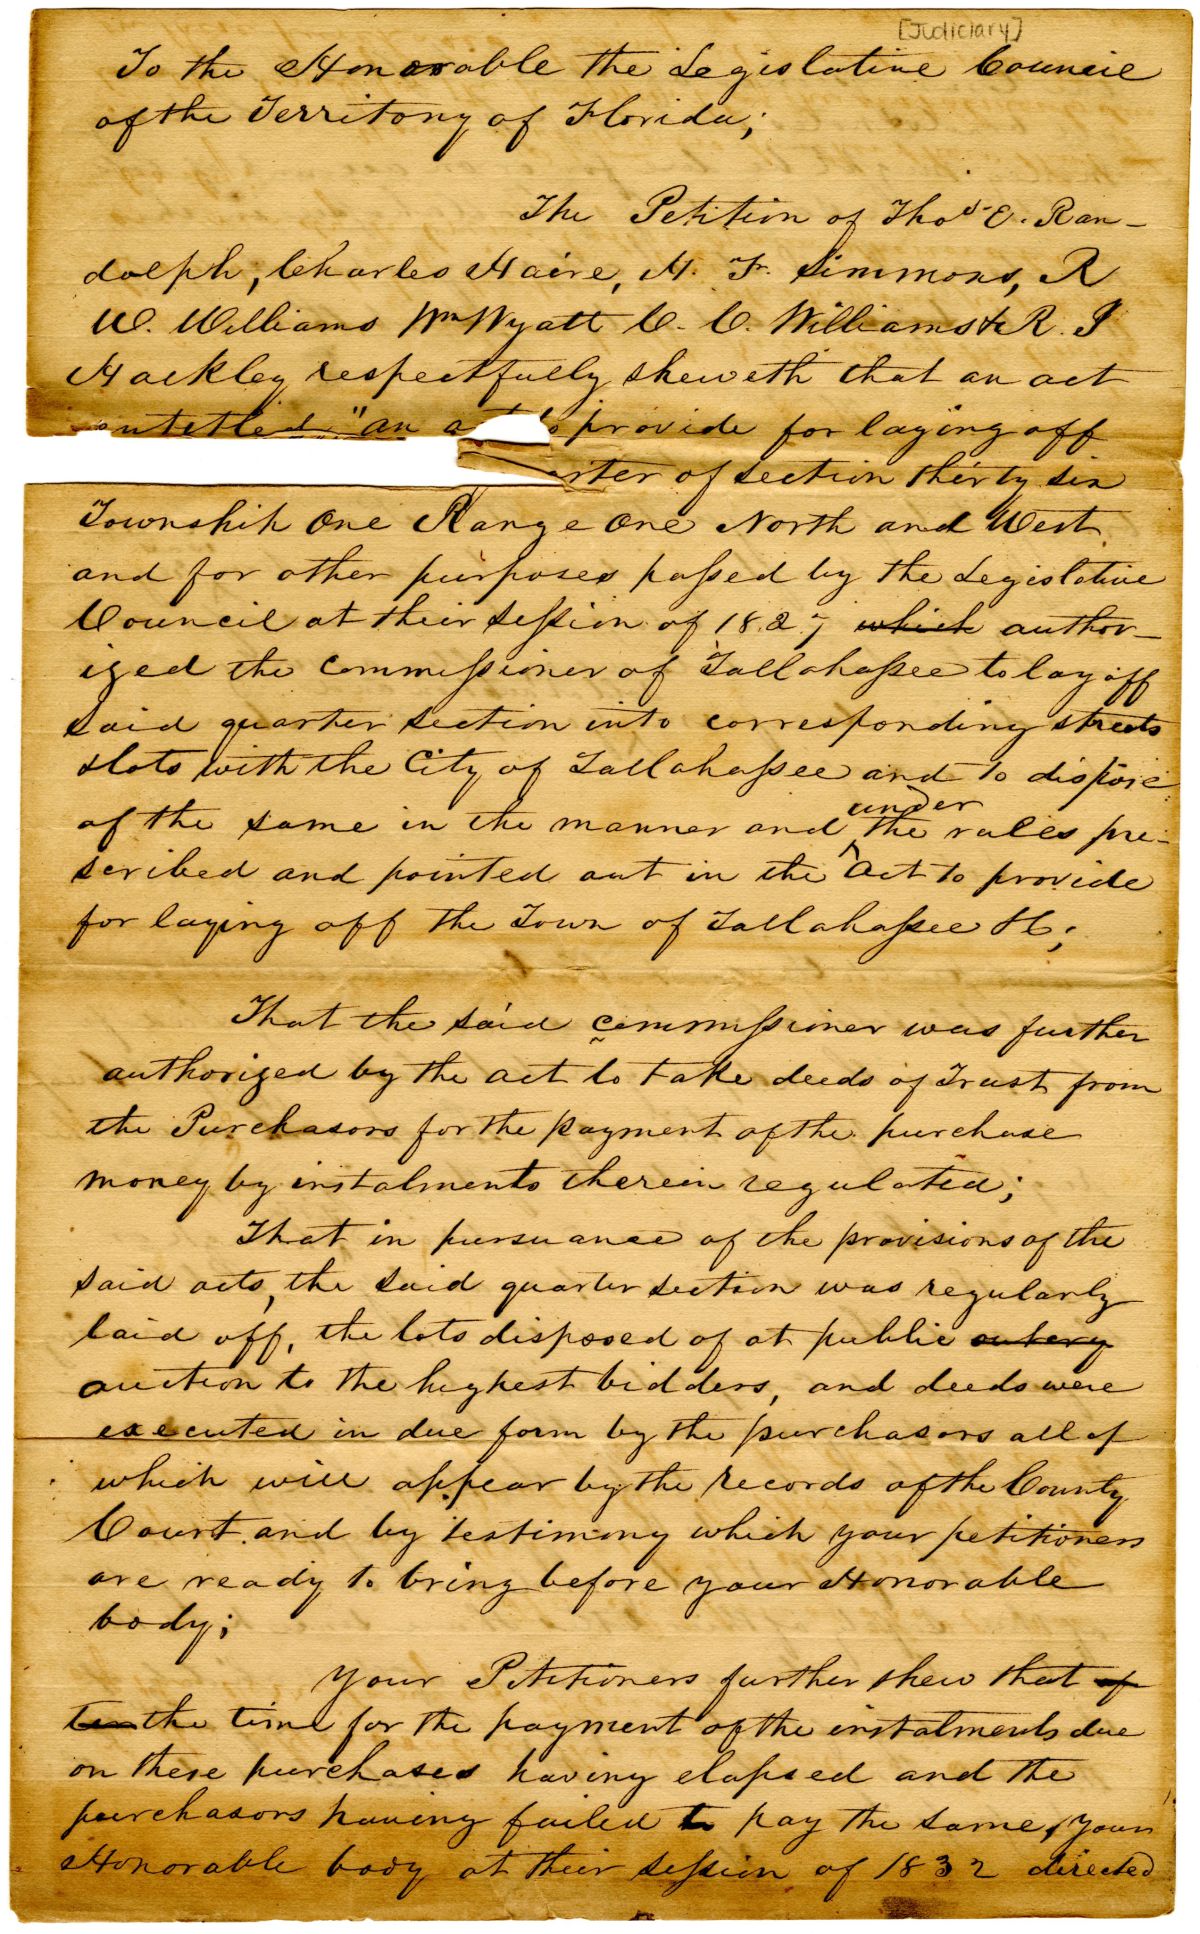 [Judiciary]
To the Honorable the Legislative Council
of the Territory of Florida;
The Petition of Thos. E. Ran-
dolph, Charles Haire, H. Fr. Simmons, R
W. Williams Wm Wyatt C. C. Williams & R. J
Hackley respectfully sheweth that an act
entitled "an act to provide for laying off
arter of section thirty six
Township One Range One North and West
and for other purposes passed by the Legislative
Council at their session of 1827 which author-
ized the commissioner of Tallahassee to lay off
said quarter section into corresponding streets
& lots with the City of Tallahassee and to dispose
of the same in the manner and under the rules pre-
scribed and pointed out in the Act to provide
for laying off the Town of Tallahassee &c;
That the said commissioner was further
authorized by the act to take deeds of Trust from
the Purchasors for the payment of the purchase
money by instalments therein regulated;
That in pursuance of the provisions of the
said acts, the said quarter section was regularly
laid off, the lots disposed of at public outcry
auction to the highest bidders, and deeds were
executed in due form by the purchasors all of
which will appear by the records of the County
Court and by testimony which your petitioners
are ready to bring before your Honorable
body;
Your Petitioners further shew that of
ten the time for the payment of the instalments due
on these purchases having elapsed and the
purchasors having failed to pay the same, your
Honorable body at their session of 1832 directed